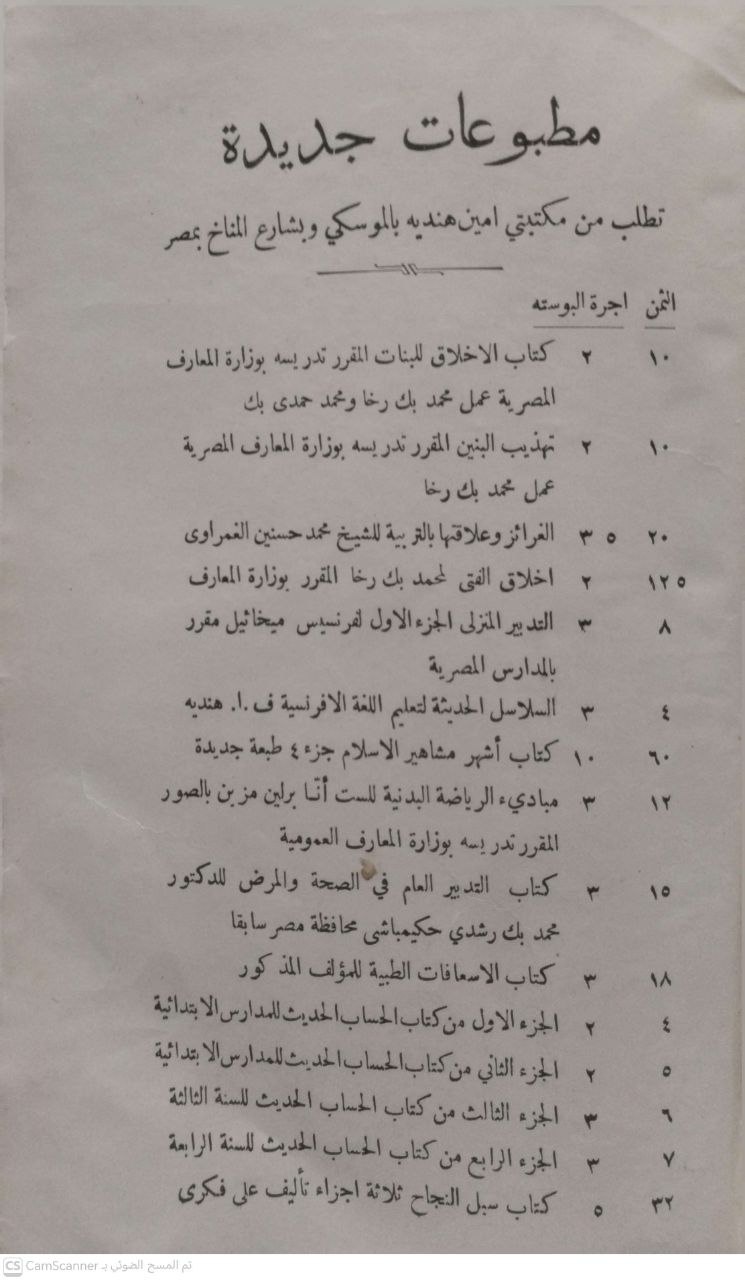 مطبوعات جديدة
تطلب من مكتبتي امين هنديه بالموسكي وبشارع المناخ بمصر
الثمن اجرة البوسته
١٠ ٢ كتاب الاخلاق للبنات المقرر تدريسه بوزارة المعارف
المصرية عمل محمد بك رخا ومحمد حمدى بك
١٠ ٢ تهذيب البنين المقرر تدريسه بوزارة المعارف المصرية
عمل محمد بك رخا
٢٠ ٥ ٣ الغرائز وعلاقتها بالتربية للشيخ محمد حسنين الغمراوى
١٢٥ ٢ اخلاق الفتى لمحمد بك رخا المقرر بوزارة المعارف
٨ ٣ التدبير المنزلى الجزء الاول لفرنسيس ميخائيل مقرر
بالمدارس المصرية
٤ ٣ السلاسل الحديثة لتعليم اللغة الافرنسية ف .ا. هنديه
٦٠ ١٠ كتاب أشهر مشاهير الاسلام جزء ٤ طبعة جديدة
١٢ ٣ مباديء الرياضة البدنية للست أنّا برلين مزين بالصور
المقرر تدريسه بوزارة المعارف العمومية
١٥ ٣ كتاب التدبير العام في الصحة والمرض للدكتور
محمد بك رشدي حكيمباشى محافظة مصر سابقا
١٨ ٣ كتاب الاسعافات الطبية للمؤلف المذكور
٤ ٢ الجزء الاول من كتاب الحساب الحديث للمدارس الابتدائية
٥ ٢ الجزء الثاني من كتاب الحساب الحديث للمدارس الابتدائية
٦ ٣ الجزء الثالث من كتاب الحساب الحديث للسنة الثالثة
٧ ٣ الجزء الرابع من كتاب الحساب الحديث للسنة الرابعة
٣٢ ٥ كتاب سبل النجاح ثلاثة اجزاء تأليف على فكرى
CS CamScanner تم المسح الضوئي بـ